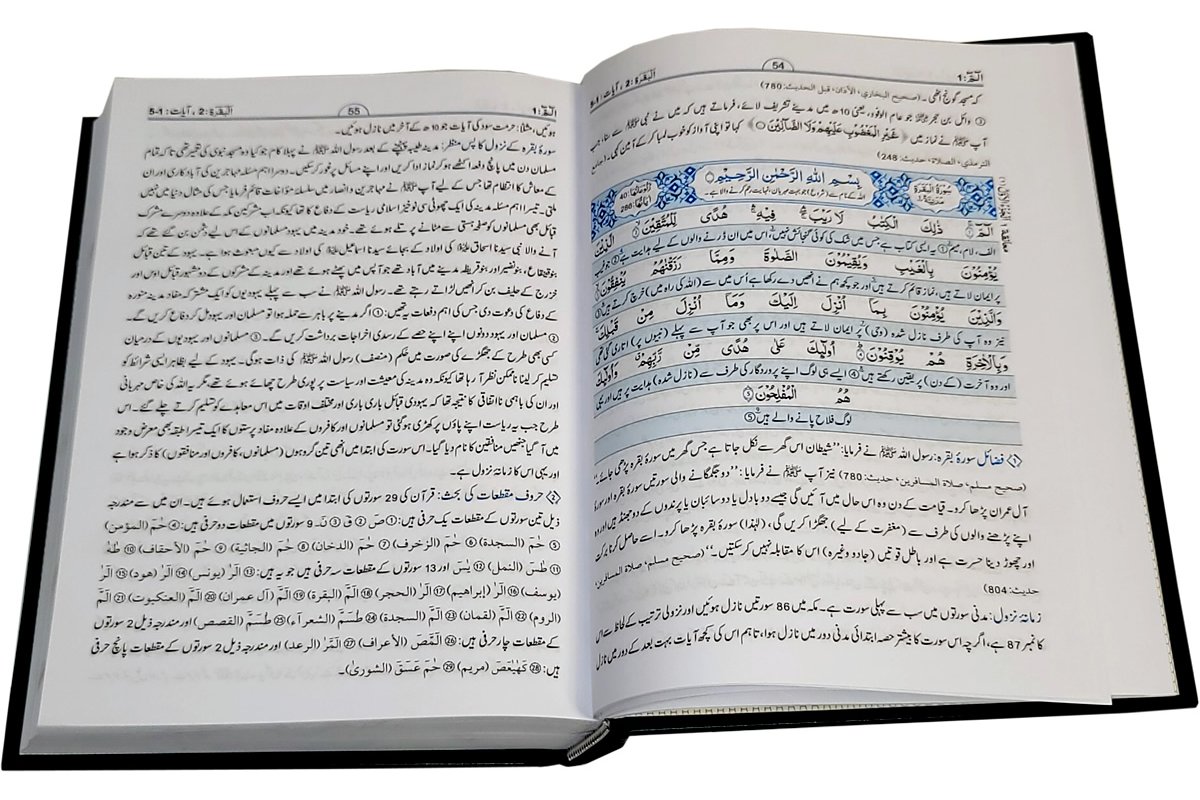 الٓمّٓ:1
54
اَلْبَقَرَة:2، آیات:1-5
کہ مسجد گونج اٹھی۔ (صحيح البخاري، الأذان، قبل الحديث:780)
③ وائل بن حجر ؓ جو عام الوفود، یعنی 10ھ میں مدینے تشریف لائے، فرماتے ہیں کہ میں نے نبی ﷺ سے سنا، جب
آپ ﷺ نے نماز میں ﴿ غَيْرِ الْمَغْضُوْبِ عَلَيْهِمْ وَلَا الضَّآلِّيْنَ ﴾ کہا تو اپنی آواز کو خوب لمبا کر کے آمین کہی۔ (جامع
الترمذي، الصلاة، حديث:248)
سُوْرَةُ الْبَقَرَةِ مَدَنِيَّةٌ
بِسْمِ اللهِ الرَّحْمٰنِ الرَّحِيْمِ
اللہ کے نام سے (شروع) جو بہت مہربان نہایت رحم کرنے والا ہے۔
رُكُوْعَاتُهَا:40
اٰيَاتُهَا:286
الٓمّٓ ۚ ذٰلِكَ الْكِتٰبُ لَا رَيْبَ ۛ فِيْهِ ۛ هُدًى لِّلْمُتَّقِيْنَ ۙ الَّذِيْنَ
الف، لام، میم ① یہ ایسی کتاب ہے جس میں شک کی کوئی گنجائش نہیں، اس میں ان ڈرنے والوں کے لیے ہدایت ہے ② جو غیب
يُؤْمِنُوْنَ بِالْغَيْبِ وَيُقِيْمُوْنَ الصَّلٰوةَ وَمِمَّا رَزَقْنٰهُمْ يُنْفِقُوْنَ
پر ایمان لاتے ہیں، نماز قائم کرتے ہیں اور جو کچھ ہم نے انھیں دے رکھا ہے اُس میں سے (اللہ کی راہ میں) خرچ کرتے ہیں ③
وَالَّذِيْنَ يُؤْمِنُوْنَ بِمَآ اُنْزِلَ اِلَيْكَ وَمَآ اُنْزِلَ مِنْ قَبْلِكَ
نیز وہ آپ کی طرف نازل شدہ (وحی) پر ایمان لاتے ہیں اور اس پر بھی جو آپ سے پہلے (نبیوں پر) اتاری گئی تھی
وَبِالْاٰخِرَةِ هُمْ يُوْقِنُوْنَ اُولٰٓئِكَ عَلٰى هُدًى مِّنْ رَّبِّهِمْ وَاُولٰٓئِكَ
اور وہ آخرت (کے دن) پر یقین رکھتے ہیں ④ ایسے ہی لوگ اپنے پروردگار کی طرف سے (نازل شدہ) ہدایت پر ہیں اور یہی
هُمُ الْمُفْلِحُوْنَ
لوگ فلاح پانے والے ہیں ⑤
① فضائل سورۂ بقرہ: رسول اللہ ﷺ نے فرمایا: ”شیطان اس گھر سے نکل جاتا ہے جس گھر میں سورۂ بقرہ پڑھی جائے۔“
(صحيح مسلم، صلاة المسافرين، حديث:780) نیز آپ ﷺ نے فرمایا: ”دو جگمگانے والی سورتیں سورۂ بقرہ اور سورۂ
آل عمران پڑھا کرو۔ قیامت کے دن وہ اس حال میں آئیں گی جیسے دو بادل یا دو سائبان یا پرندوں کے دو جھنڈ ہیں اور وہ
اپنے پڑھنے والوں کی طرف سے (مغفرت کے لیے) جھگڑا کریں گی، (لہٰذا) سورۂ بقرہ پڑھا کرو۔ اسے حاصل کرنا برکت
اور چھوڑ دینا حسرت ہے اور باطل قوتیں (جادو وغیرہ) اس کا مقابلہ نہیں کر سکتیں۔“ (صحيح مسلم، صلاة المسافرين،
حديث:804)
زمانۂ نزول: مدنی سورتوں میں سب سے پہلی سورت ہے۔ مکہ میں 86 سورتیں نازل ہوئیں اور نزولی ترتیب کے لحاظ سے اس
کا نمبر 87 ہے، اگرچہ اس سورت کا بیشتر حصہ ابتدائی مدنی دور میں نازل ہوا، تاہم اس کی کچھ آیات بہت بعد کے دور میں نازل
الٓمّٓ:1
55
اَلْبَقَرَة:2، آیات:1-5
ہوئیں، مثلاً: حرمت سود کی آیات جو 10ھ کے آخر میں نازل ہوئیں۔
سورۂ بقرہ کے نزول کا پس منظر: مدینہ طیبہ پہنچنے کے بعد رسول اللہ ﷺ نے پہلا کام جو کیا وہ مسجد نبوی کی تعمیر تھی تاکہ تمام
مسلمان دن میں پانچ دفعہ اکٹھے ہو کر نماز ادا کریں اور اپنے مسائل پر غور کر سکیں۔ دوسرا اہم مسئلہ مہاجرین کی آباد کاری اور ان
کے معاش کا انتظام تھا جس کے لیے آپ ﷺ نے مہاجرین و انصار میں سلسلۂ مؤاخات قائم فرمایا جس کی مثال دنیا میں نہیں
ملتی۔ تیسرا اہم مسئلہ مدینہ کی ایک چھوٹی سی نوخیز اسلامی ریاست کے دفاع کا تھا کیونکہ اب مشرکین مکہ کے علاوہ دوسرے مشرک
قبائل بھی مسلمانوں کو صفحۂ ہستی سے مٹانے پر تلے ہوئے تھے۔ خود مدینہ میں یہود مسلمانوں کے اس لیے دشمن بن گئے تھے کہ
آنے والا نبی سیدنا اسحاق ؑ کی اولاد کے بجائے سیدنا اسماعیل ؑ کی اولاد سے کیوں مبعوث ہوا ہے۔ یہود کے تین قبائل
بنو قینقاع، بنو نضیر اور بنو قریظہ مدینے میں آباد تھے جو آپس میں پھٹے ہوئے تھے اور مدینہ کے مشرکوں کے دو مشہور قبائل اوس اور
خزرج کے حلیف بن کر انھیں لڑاتے رہتے تھے۔ رسول اللہ ﷺ نے سب سے پہلے یہودیوں کو ایک مشترکہ مفاد مدینہ منورہ
کے دفاع کی دعوت دی جس کی اہم دفعات یہ تھیں: ① اگر مدینے پر باہر سے حملہ ہوا تو مسلمان اور یہود مل کر دفاع کریں گے۔
② مسلمان اور یہود دونوں اپنے اپنے حصے کے رسدی اخراجات برداشت کریں گے۔ ③ مسلمانوں اور یہودیوں کے درمیان
کسی بھی طرح کے جھگڑے کی صورت میں حَکَم (منصف) رسول اللہ ﷺ کی ذات ہوگی۔ یہود کے لیے بظاہر ایسی شرائط کو
تسلیم کر لینا ناممکن نظر آ رہا تھا کیونکہ وہ مدینہ کی معیشت اور سیاست پر پوری طرح چھائے ہوئے تھے مگر یہ اللہ کی خاص مہربانی
اور ان کی باہمی نا اتفاقی کا نتیجہ تھا کہ یہودی قبائل باری باری اور مختلف اوقات میں اس معاہدے کو تسلیم کرتے چلے گئے۔ اس
طرح جب یہ ریاست اپنے پاؤں پر کھڑی ہو گئی تو مسلمانوں اور کافروں کے علاوہ مفاد پرستوں کا ایک تیسرا طبقہ بھی معرض وجود
میں آ گیا جنھیں منافقین کا نام دیا گیا۔ اس سورت کی ابتدا میں انھی تین گروہوں (مسلمانوں، کافروں اور منافقوں) کا ذکر ہوا ہے
اور یہی اس کا زمانۂ نزول ہے۔
② حروف مقطعات کی بحث: قرآن کی 29 سورتوں کی ابتدا میں ایسے حروف استعمال ہوئے ہیں۔ ان میں سے مندرجہ
ذیل تین سورتوں کے مقطعات یک حرفی ہیں: ① صٓ ② قٓ ③ نٓ۔ 9 سورتوں میں مقطعات دو حرفی ہیں: ④ حٰمٓ (المؤمن)
⑤ حٰمٓ (السجدة) ⑥ حٰمٓ (الزخرف) ⑦ حٰمٓ (الدخان) ⑧ حٰمٓ (الجاثية) ⑨ حٰمٓ (الأحقاف) ⑩ طٰهٰ
⑪ طٰسٓ (النمل) ⑫ يٰسٓ اور 13 سورتوں کے مقطعات سہ حرفی ہیں جو یہ ہیں: ⑬ الٓرٰ (يونس) ⑭ الٓرٰ (هود) ⑮ الٓرٰ
(يوسف) ⑯ الٓرٰ (إبراهيم) ⑰ الٓرٰ (الحجر) ⑱ الٓمّٓ (البقرة) ⑲ الٓمّٓ (آل عمران) ⑳ الٓمّٓ (العنكبوت) ㉑ الٓمّٓ
(الروم) ㉒ الٓمّٓ (لقمان) ㉓ الٓمّٓ (السجدة) ㉔ طٰسٓمّٓ (الشعرآء) ㉕ طٰسٓمّٓ (القصص) اور مندرجہ ذیل 2 سورتوں
کے مقطعات چار حرفی ہیں: ㉖ الٓمّٓصٓ (الأعراف) ㉗ الٓمّٓرٰ (الرعد) اور مندرجہ ذیل 2 سورتوں کے مقطعات پانچ حرفی
ہیں: ㉘ كٓهٰيٰعٓصٓ (مريم) ㉙ حٰمٓ عٓسٓقٓ (الشورىٰ)۔